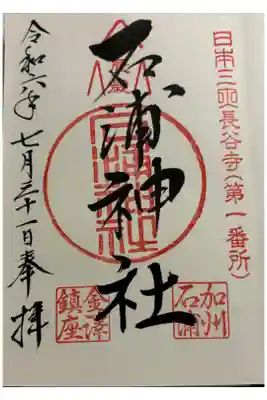 日本三 長谷寺(第一番所)
加州
石浦
石浦神社
石浦神社
金澤
鎮座
令和六年七月三十一日奉拝